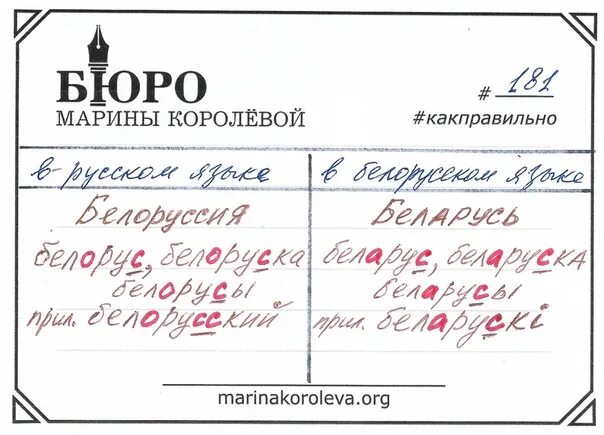 БЮРО
МАРИНЫ КОРОЛЁВОЙ
# 181
#какправильно
в русском языке
в белорусском языке
Белоруссия
Беларусь
белорус, белоруска
беларус, беларуска
белорусы
беларусы
прил. белорусский
прил. беларускі
marinakoroleva.org